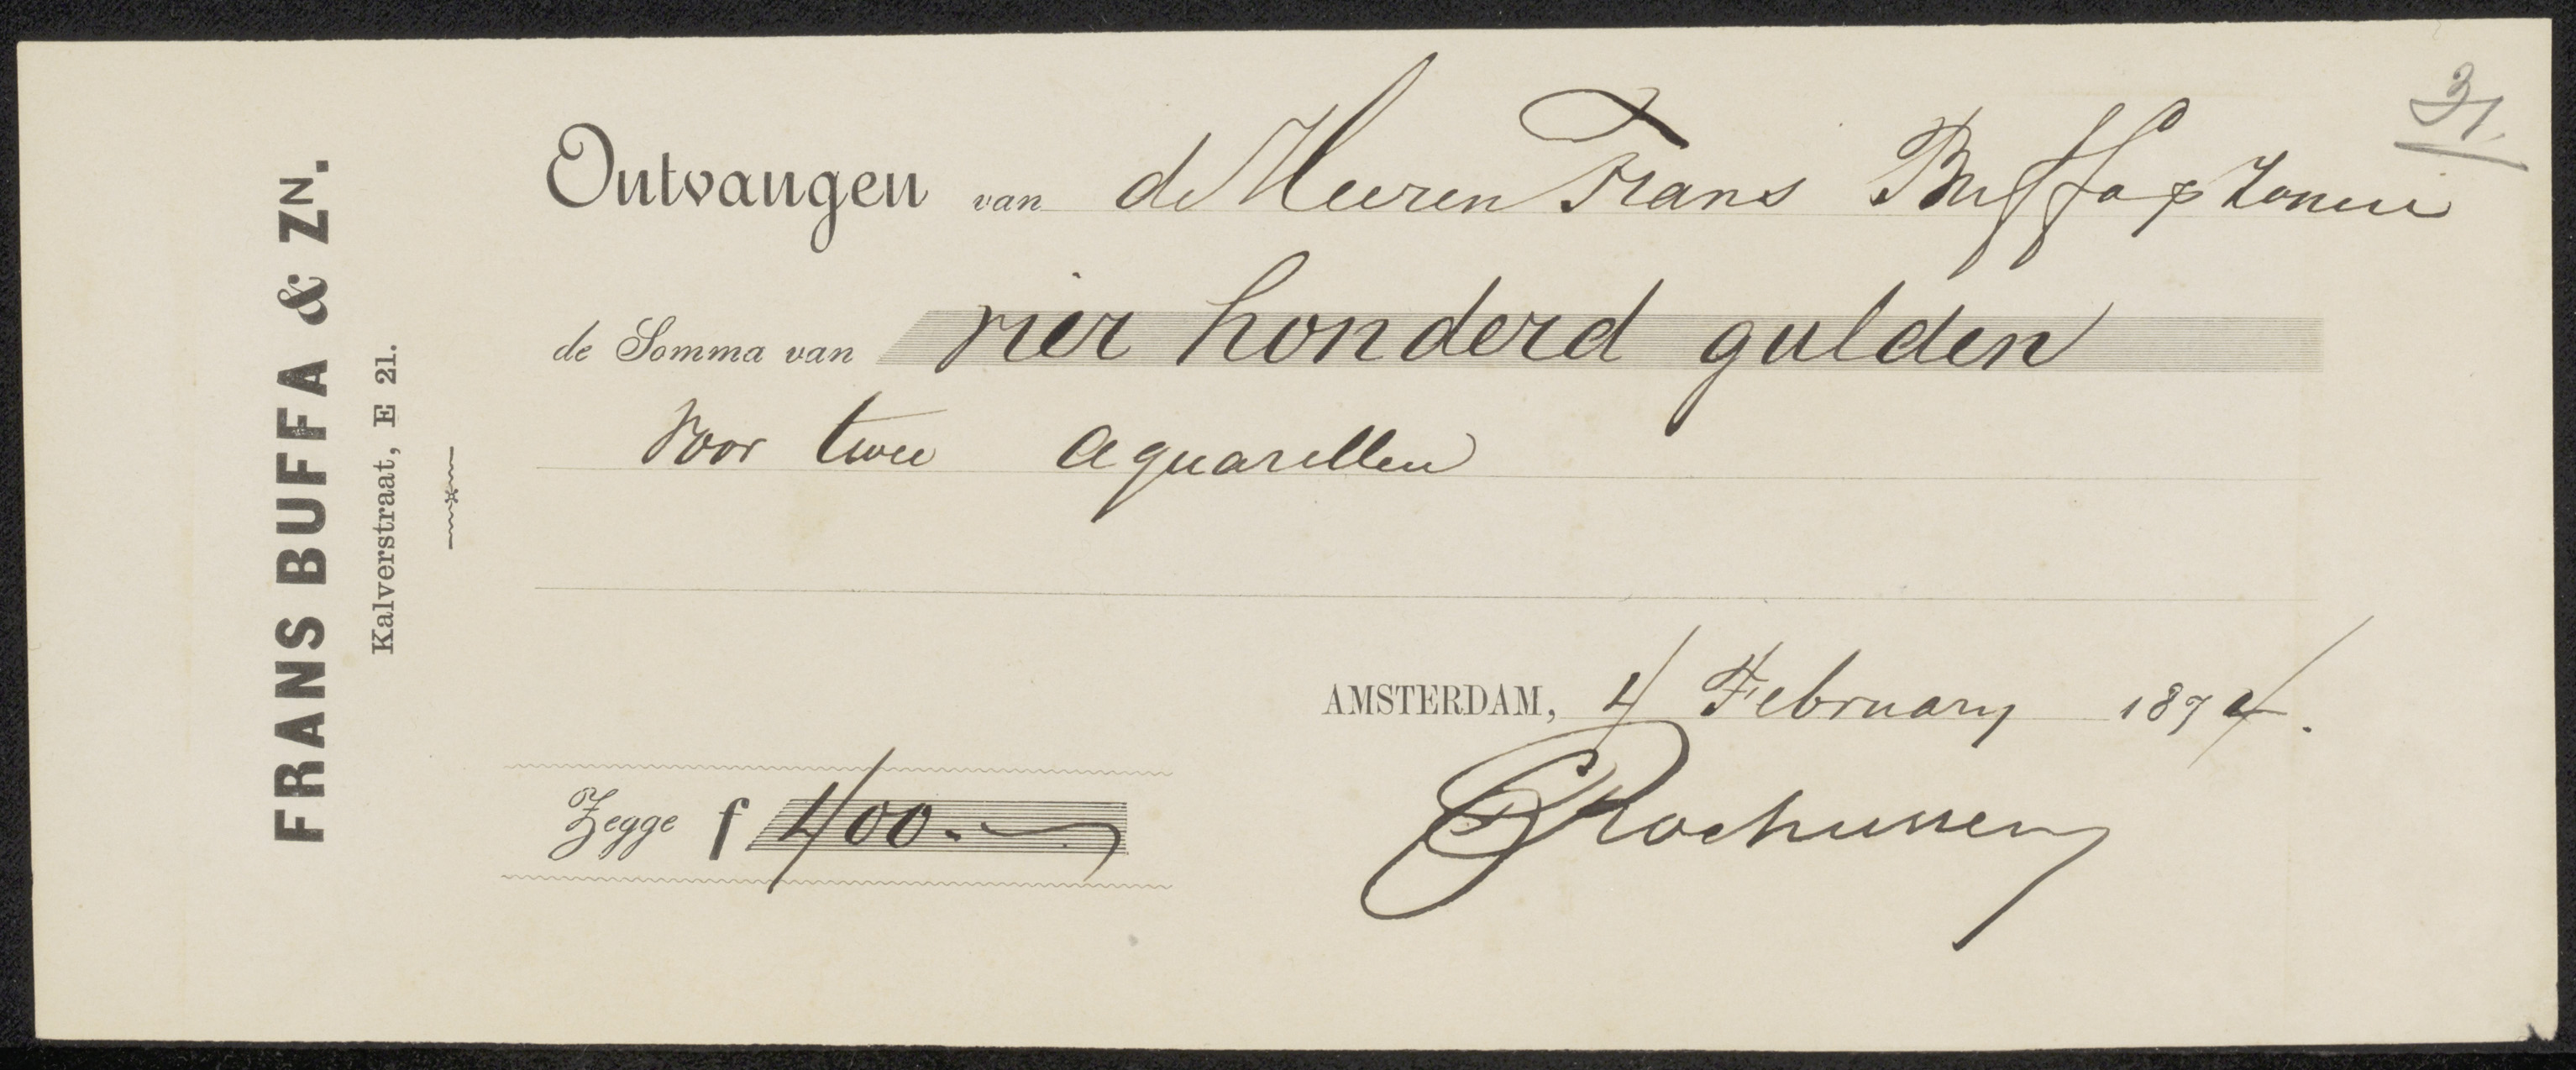 31.
FRANS BUFFA & ZN.
Kalverstraat, E 21.
Ontvangen van de Heeren Frans Buffa & Zonen
de Somma van vier honderd gulden
voor twee aquarellen
AMSTERDAM, 4 February 1874.
Zegge f 400.-
CRochussen